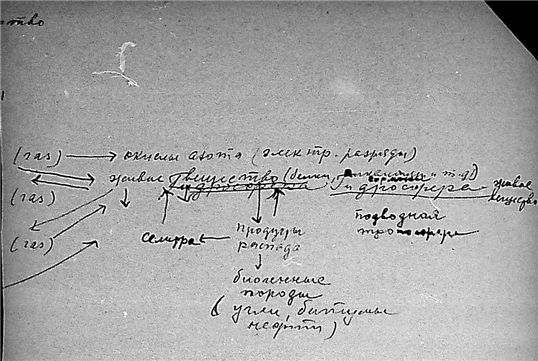 ство
(газ) → окислы азота (электр. разряды)
живое вещество (белки, и т.д) живое
гидросфера гидросфера вещество
(газ)
(газ) селитра ← продукты распада подводная тропосфера
биогенные
породы
(угли, битумы
нефти)